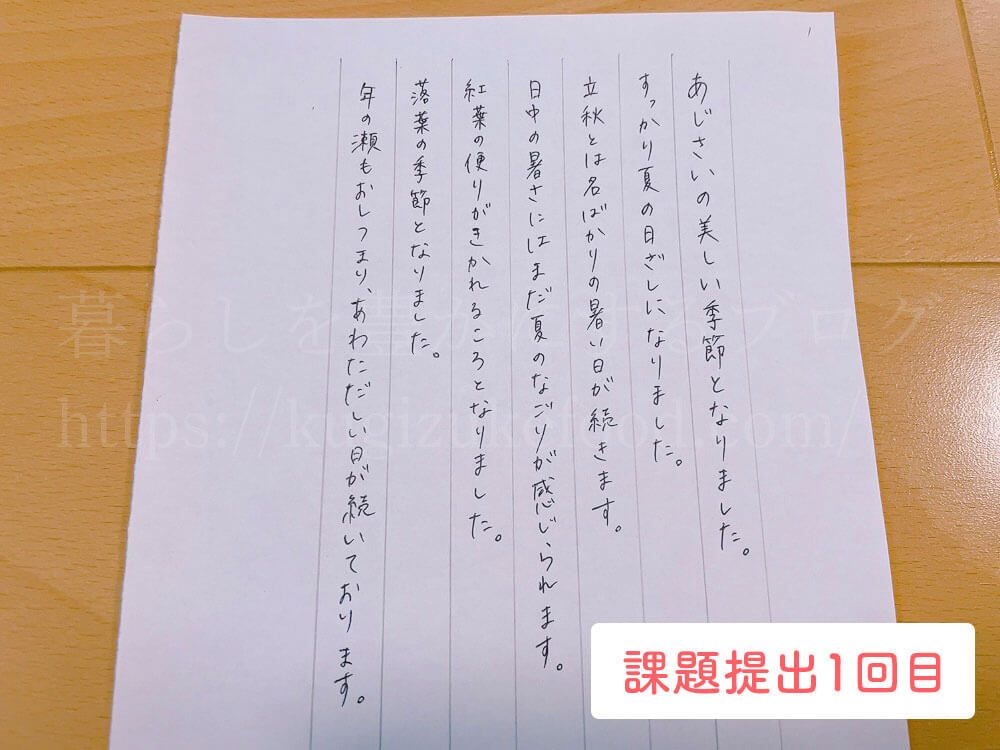 あじさいの美しい季節となりました。
すっかり夏の日ざしになりました。
立秋とは名ばかりの暑い日が続きます。
日中の暑さにはまだ夏のなごりが感じられます。
紅葉の便りがきかれるころとなりました。
落葉の季節となりました。
年の瀬もおしつまり、あわただしい日が続いております。
暮らしを豊かにするブログ
https://kugizukefood.com/
課題提出1回目